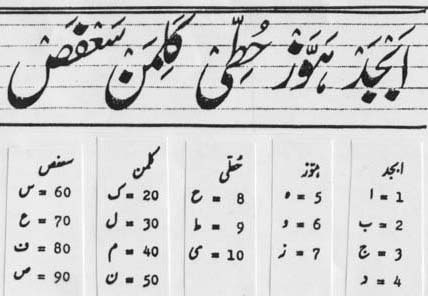 اَبْجَدْ هَوَّزْ حُطِّىْ كَلِمَنْ سَعْفَصْ
ابجد
ا = 1
ب = 2
ج = 3
د = 4
ہوّز
ہ = 5
و = 6
ز = 7
حُطّی
ح = 8
ط = 9
ی = 10
کلمن
ک = 20
ل = 30
م = 40
ن = 50
سعفص
س = 60
ع = 70
ف = 80
ص = 90